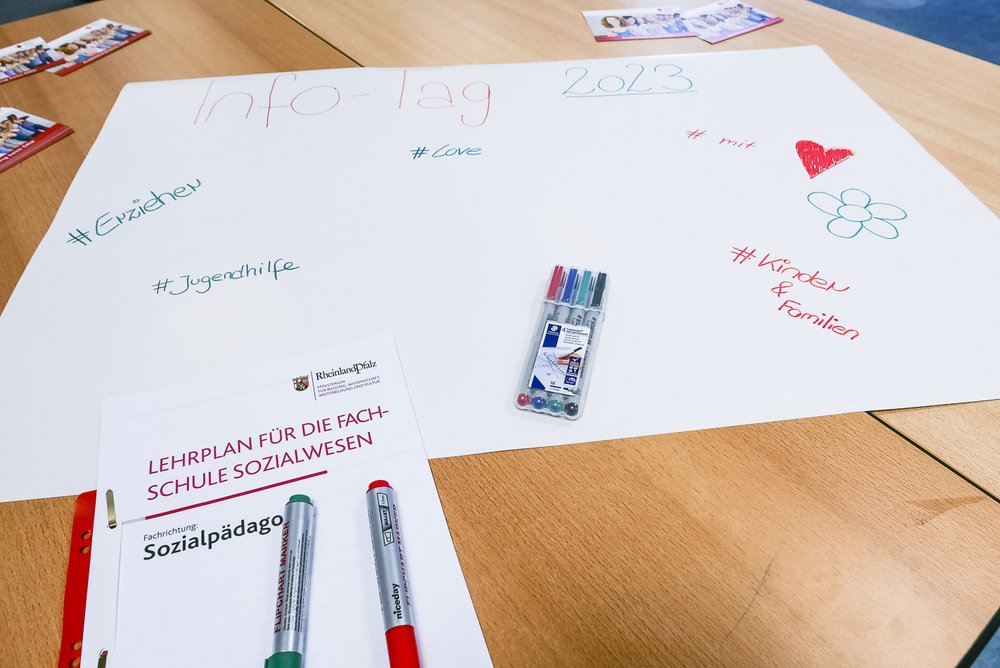 Info-Tag 2023
#Love
# mit
#Erzieher
#Jugendhilfe
#Kinder
&
Familien
RheinlandPfalz
MINISTERIUM
FÜR BILDUNG, WISSENSCHAFT,
WEITERBILDUNG UND KULTUR
LEHRPLAN FÜR DIE FACH-
SCHULE SOZIALWESEN
Fachrichtung:
Sozialpädago
FLIPCHART MARKER
niceday
FLIPCHART MARKER